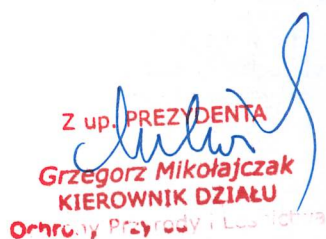 Z up. PREZYDENTA
Grzegorz Mikołajczak
KIEROWNIK DZIAŁU
Ochrony Przyrody i Leśnictwa